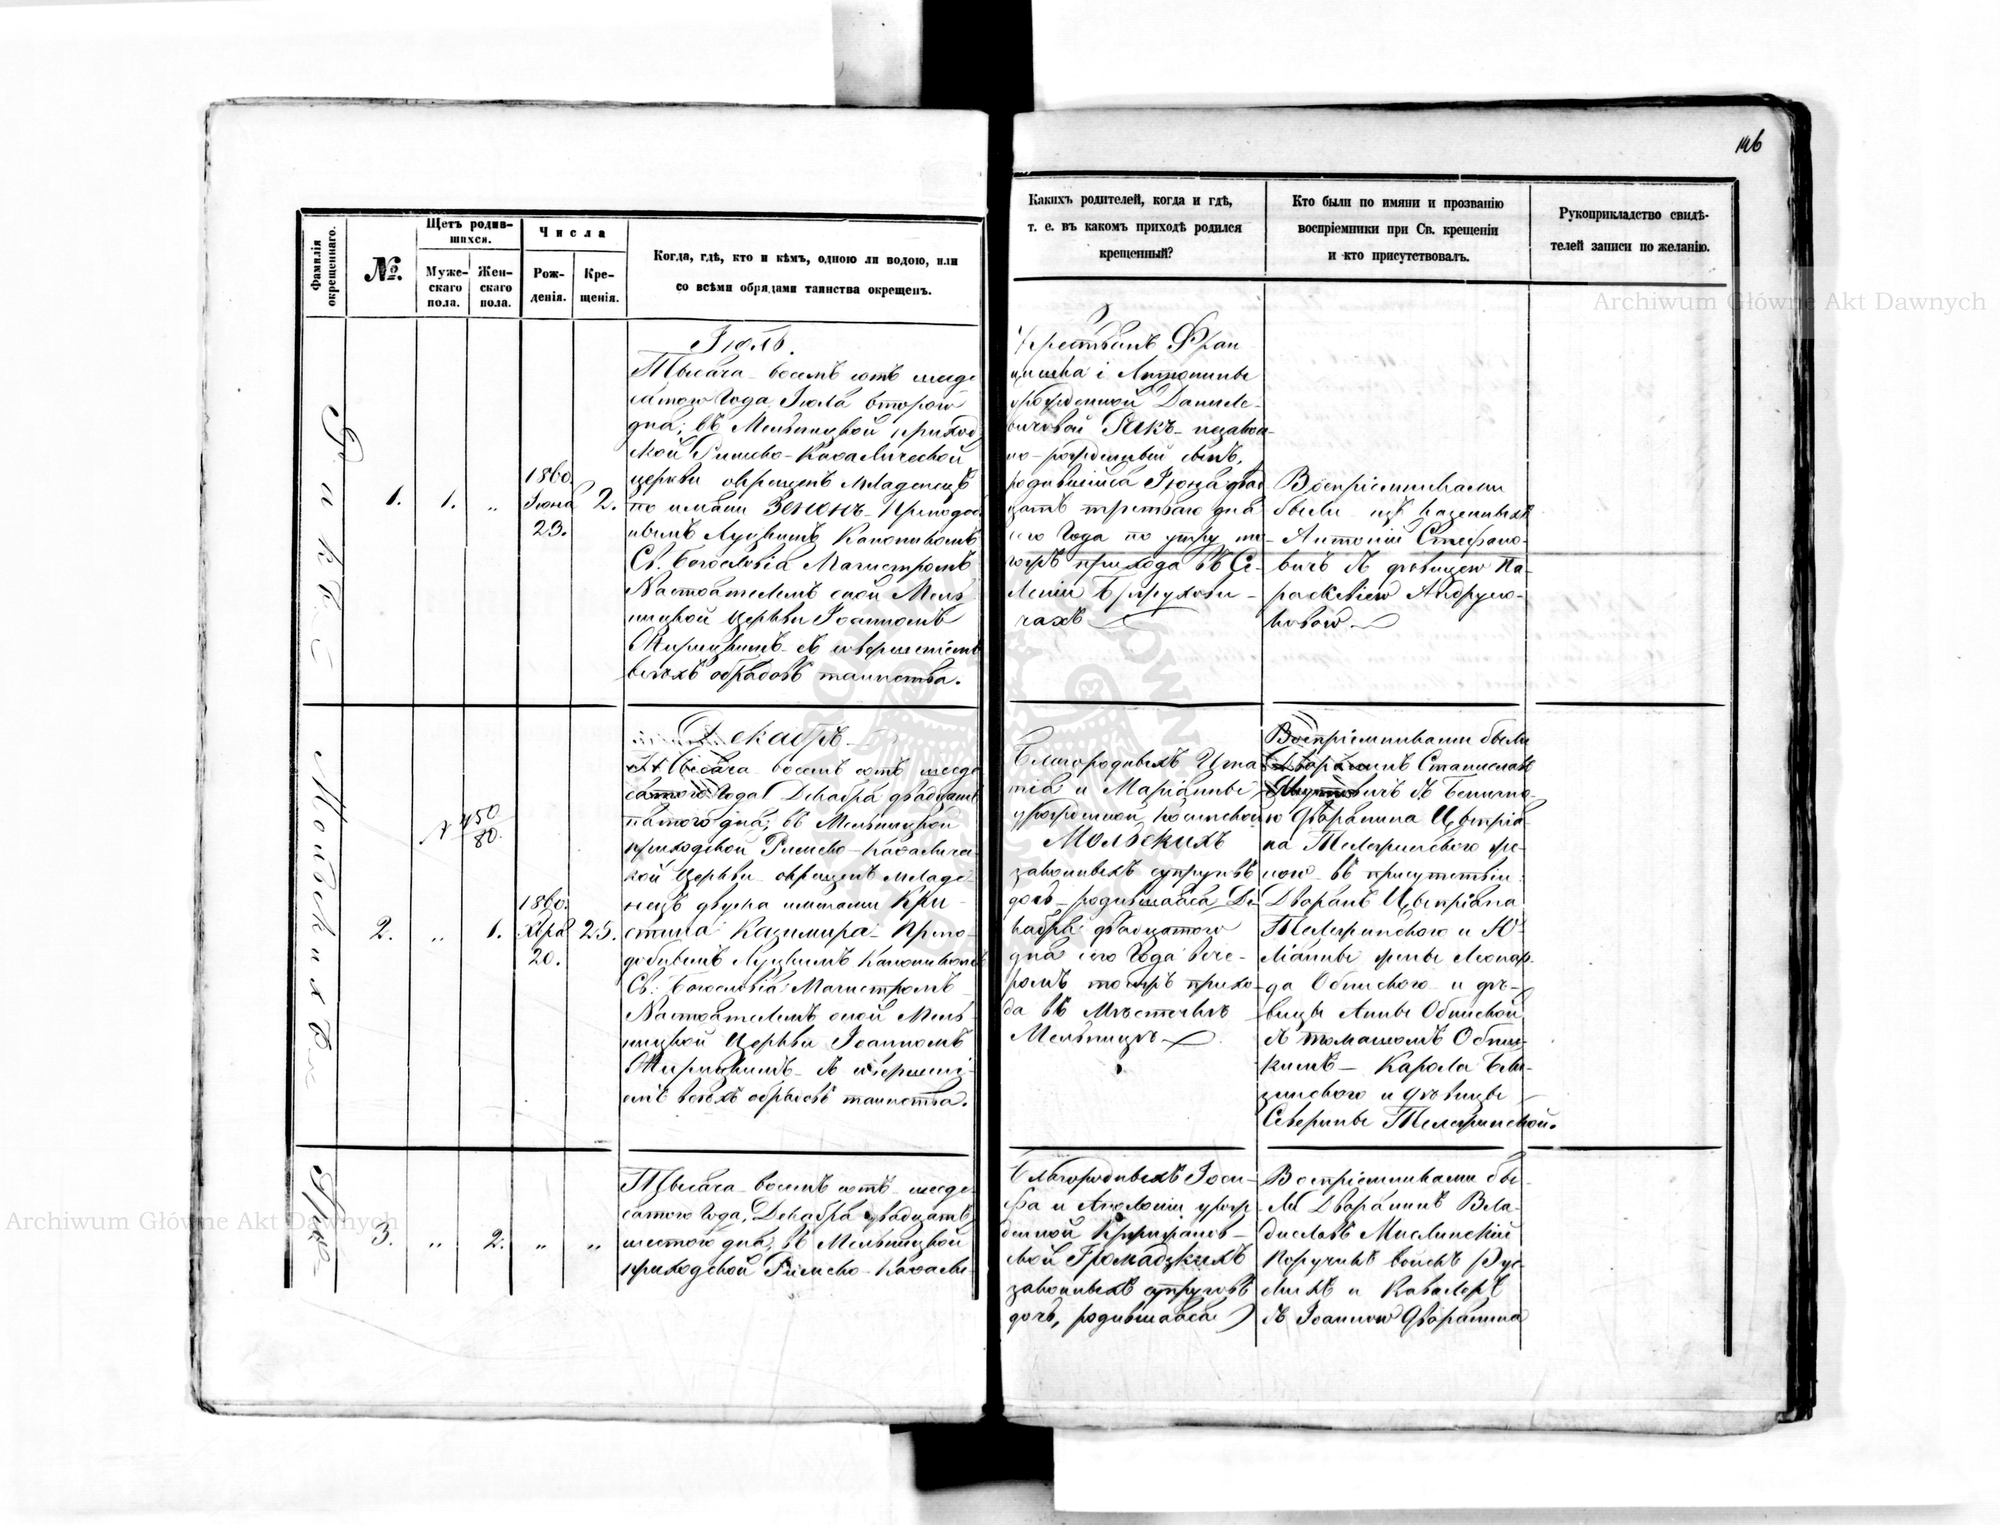 146
Фамилія окрещеннаго.
№.
Щетъ родив-
шихся.
Муже-
скаго
пола.
Жен-
скаго
пола.
Числа
Рож-
денія.
Кре-
щенія.
Когда, гдѣ, кто и кѣмъ, одною ли водою, или
со всѣми обрядами таинства окрещенъ.
Какихъ родителей, когда и гдѣ,
т. е. въ какомъ приходѣ родился
крещенный?
Кто были по имяни и прозванію
воспріемники при Св. крещеніи
и кто присутствовалъ.
Рукоприкладство свидѣ-
телей записи по желанію.
1.
1.
„
1860.
Іюня
23.
2.
Іюль.
Тысяча восемъ сотъ шесде-
сятого Года Іюля второго
дня; въ Мельницкой приход-
ской Римско-Каѳолической
церкви окрещенъ младенецъ
по имяни Зенонъ Преподоб-
нымъ Луцкимъ Каноникомъ
Св. Богословія Магистромъ
Настоятелемъ оной Мель-
ницкой Церкви Іоанномъ
съ совершеніемъ
всехъ обрядовъ таинства.
Крестьянъ Фран-
цишка і Антонины
урожденной Даниле-
вичовой незакон-
но-рожденный сынъ,
родившійся Іюня двад-
цать третьяго дня
сего Года по утру то-
гожъ прихода въ Се-
леніи
чахъ
Воспріемниками
были изъ казенныхъ
Антоній Стефано-
вичъ съ девицею Па-
раскевіею Андрую-
ковою
Мольскихъ
№ 450
80.
2.
„
1.
1860.
Хбра
20.
25.
Декабрь
Тысяча восемъ сотъ шесде-
сятого Года Декабря двадцать
пятого дня; въ Мельницкой
приходской Римско-Каѳоличе-
кой Церкви окрещенъ младе-
нецъ двумя имянами Кри-
стина Казимира Препо-
добнымъ Луцкимъ Каноникомъ
Св: Богословія Магистромъ
Настоятелемъ оной Мель-
ницкой Церкви Іоанномъ
съ совершені-
емъ всехъ обрядовъ таинства.
Благородныхъ Игна-
тія и Маріанны
урожденной
Мольскихъ
законныхъ супруговъ
дочь родившаяся Де-
кабря двадцятого
дня сего Года вече-
ромъ тогожъ прихо-
да въ Местечке
Мельнице
Воспріемниками были
Дворянинъ Станиславъ
съ Бенигно-
ю дворянина Ципріа-
на Тележинского же-
ною въ присутствіи
Дворянъ Ципріана
Тележинского и Ю-
ліанны жены Леонар-
да Обинского и де-
вицы Анны Обинской
съ томашомъ Обин-
скимъ Кароля
и девицы
Северины Тележинской.
3.
„
2.
„
„
Тысяча восемъ сотъ шесде-
сятого Года, Декабря двадцать
шестого дня, въ Мельницкой
приходской Римско-Каѳоли-
Благородныхъ Іоси-
фа и Аполоніи урож-
денной
Громадзкихъ
законныхъ супруговъ
дочь, родившаяся
Воспріемниками бы-
ли Дворянинъ Вла-
диславъ Мислинскій
Поручикъ войскъ Рус-
скихъ и Кавалеръ
съ Іоанною Дворянина
Archiwum Główne Akt Dawnych
Archiwum Główne Akt Dawnych